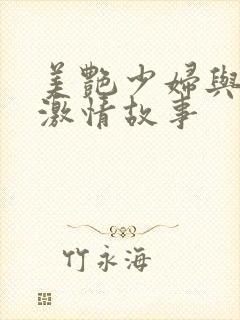 美艷少婦與
激情故事
竹永海